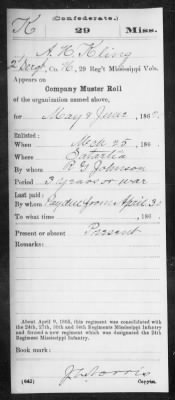 (Confederate.)
K 29 Miss.
A. H. Kling
2 Sergt, Co. K, 29 Reg't Mississippi Vols.
Appears on
Company Muster Roll
of the organization named above,
for May & June, 186
Enlisted:
When Mch 25, 186
Where Satartia
By whom R G Johnson
Period 3 years or war
Last paid:
By whom Pay due from April 30
To what time , 186
Present or absent Present
Remarks:
About April 9, 1865, this regiment was consolidated with
the 24th, 27th, 30th and 34th Regiments Mississippi Infantry
and formed a new regiment which was designated the 24th
Regiment Mississippi Infantry.
Book mark:
(642)
Copyist.